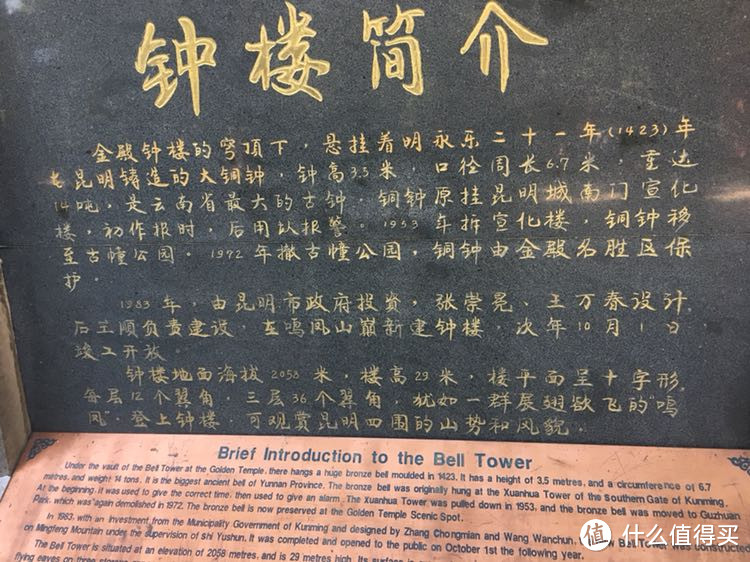 钟楼简介
金殿钟楼的穹顶下，悬挂着明永乐二十一年(1423)年
昆明铸造的大铜钟，钟高3.5米，口径周长6.7米，重达
14吨，是云南省最大的古钟，铜钟原挂昆明城南门宣化
楼，初作报时，后用以报警。1953年拆宣化楼，铜钟移
至古幢公园。1972年撤古幢公园，铜钟由金殿名胜区保
护。
1983年，由昆明市政府投资，张崇晃、王万春设计，
顺负责建设，在鸣凤山巅新建钟楼，次年10月1日
竣工开放。
钟楼地面海拔2058米，楼高29米，楼平面呈十字形，
每层12个翼角，三层36个翼角，犹如一群展翅欲飞的“鸣
凤”。登上钟楼 可观赏昆明四围的山势和风貌。
Brief Introduction to the Bell Tower
Under the vault of the Bell Tower at the Golden Temple, there hangs a huge bronze bell moulded in 1423. It has a height of 3.5 metres, and a circumference of 6.7
metres, and weight 14 tons. It is the biggest ancient bell of Yunnan Province. The bronze bell was originally hung at the Xuanhua Tower of the Southern Gate of Kunming.
At the beginning, it was used to give the correct time, then used to give an alarm. The Xuanhua Tower was pulled down in 1953, and the bronze bell was moved to Guzhuan
Park, which was again demolished in 1972. The bronze bell is now preserved at the Golden Temple Scenic Spot.
In 1983, with an investment from the Municipality Government of Kunming and designed by Zhang Chongmian and Wang Wanchun, Bell Tower was constructed
on Mingfeng Mountain under the supervision of shi Yushun. It was completed and opened to the public on October 1st the following year.
The Bell Tower is situated at an elevation of 2058 metres, and is 29 metres high. Its surface is
flying eaves on three
值 什么值得买